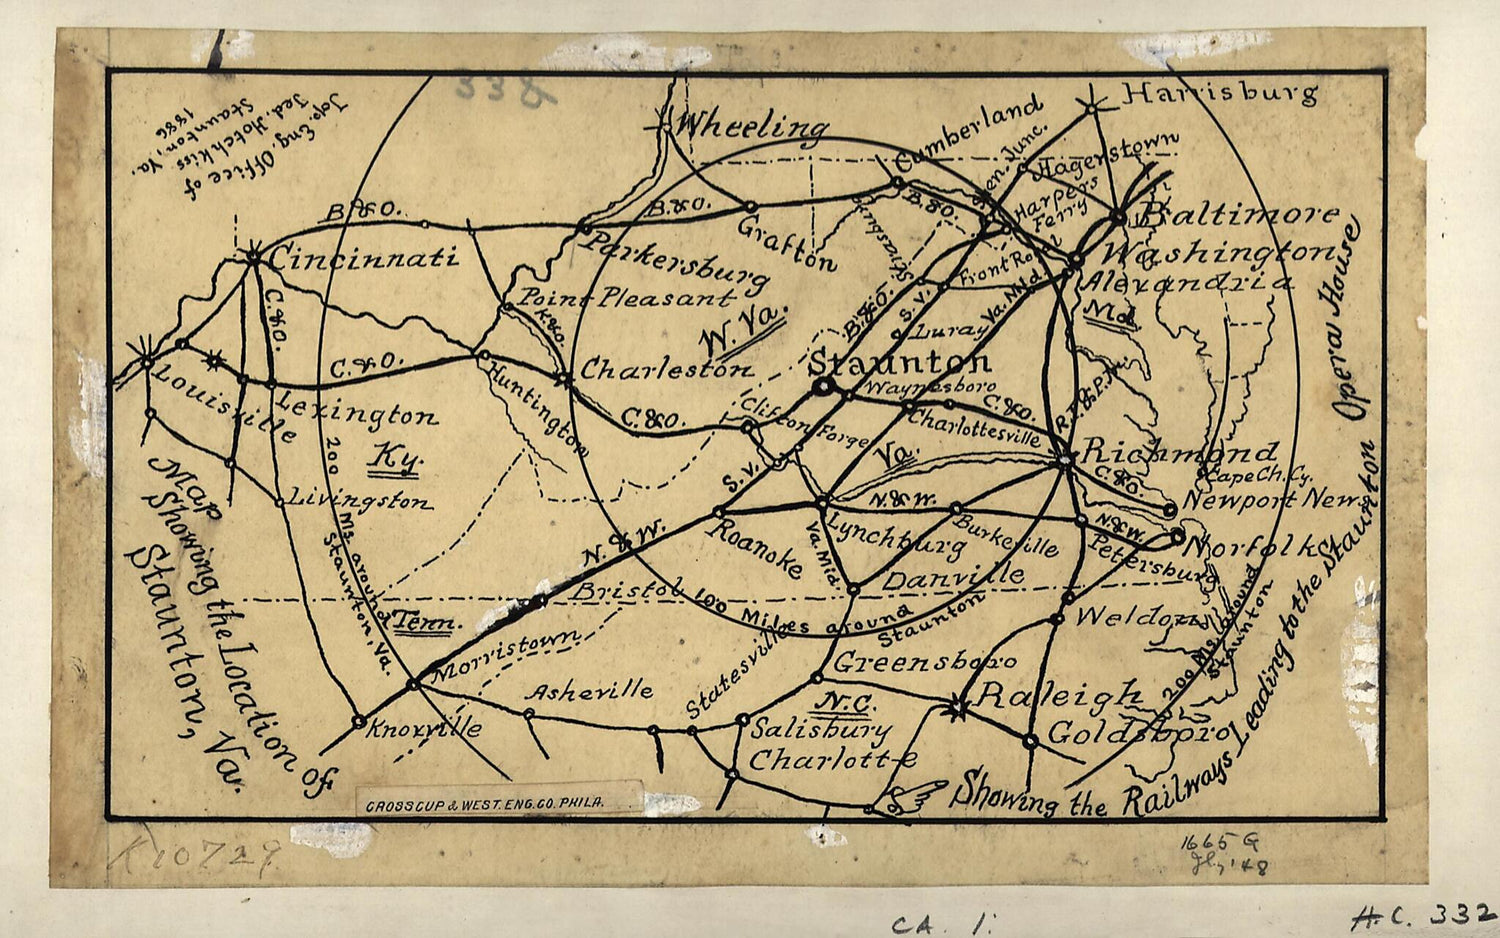 332
Top. Eng. Office of
Jed. Hotchkiss
Staunton, Va.
1886
Harrisburg
Wheeling
Cumberland
Hagerstown
B.&O.
B.&O.
B.&O.
Harpers
Ferry
Baltimore
Grafton
Strasburg
Washington
Cincinnati
Parkersburg
Front Royal
Alexandria
Point Pleasant
K.&O.
W. Va.
B.&O.
S.V.
Luray
Va. Mid.
Md.
C.&O.
C.&O.
Charleston
Staunton
Louisville
Lexington
Huntington
Waynesboro
C.&O.
C.&O.
Clifton Forge
Charlottesville
R.F.&P.
Ky.
Va.
Richmond
Cape Ch. Cy.
C.&O.
Newport News
S.V.
Livingston
N.&W.
Roanoke
N.&W.
Lynchburg
Burkeville
N.&W.
Norfolk
Petersburg
Va. Mid.
Danville
Bristol
100 Miles around
Staunton
200 Ms. around
Staunton, Va.
Tenn.
Weldon
Morristown
Statesville
Greensboro
200 Ms. around
Staunton
Asheville
N.C.
Raleigh
Knoxville
Salisbury
Goldsboro
Charlotte
Map
Showing the Location of
Staunton, Va.
Showing the Railways Leading to the Staunton Opera House
CROSSCUP & WEST. ENG. CO. PHILA.
K10729
1665 G
CA. 1.
H.C. 332